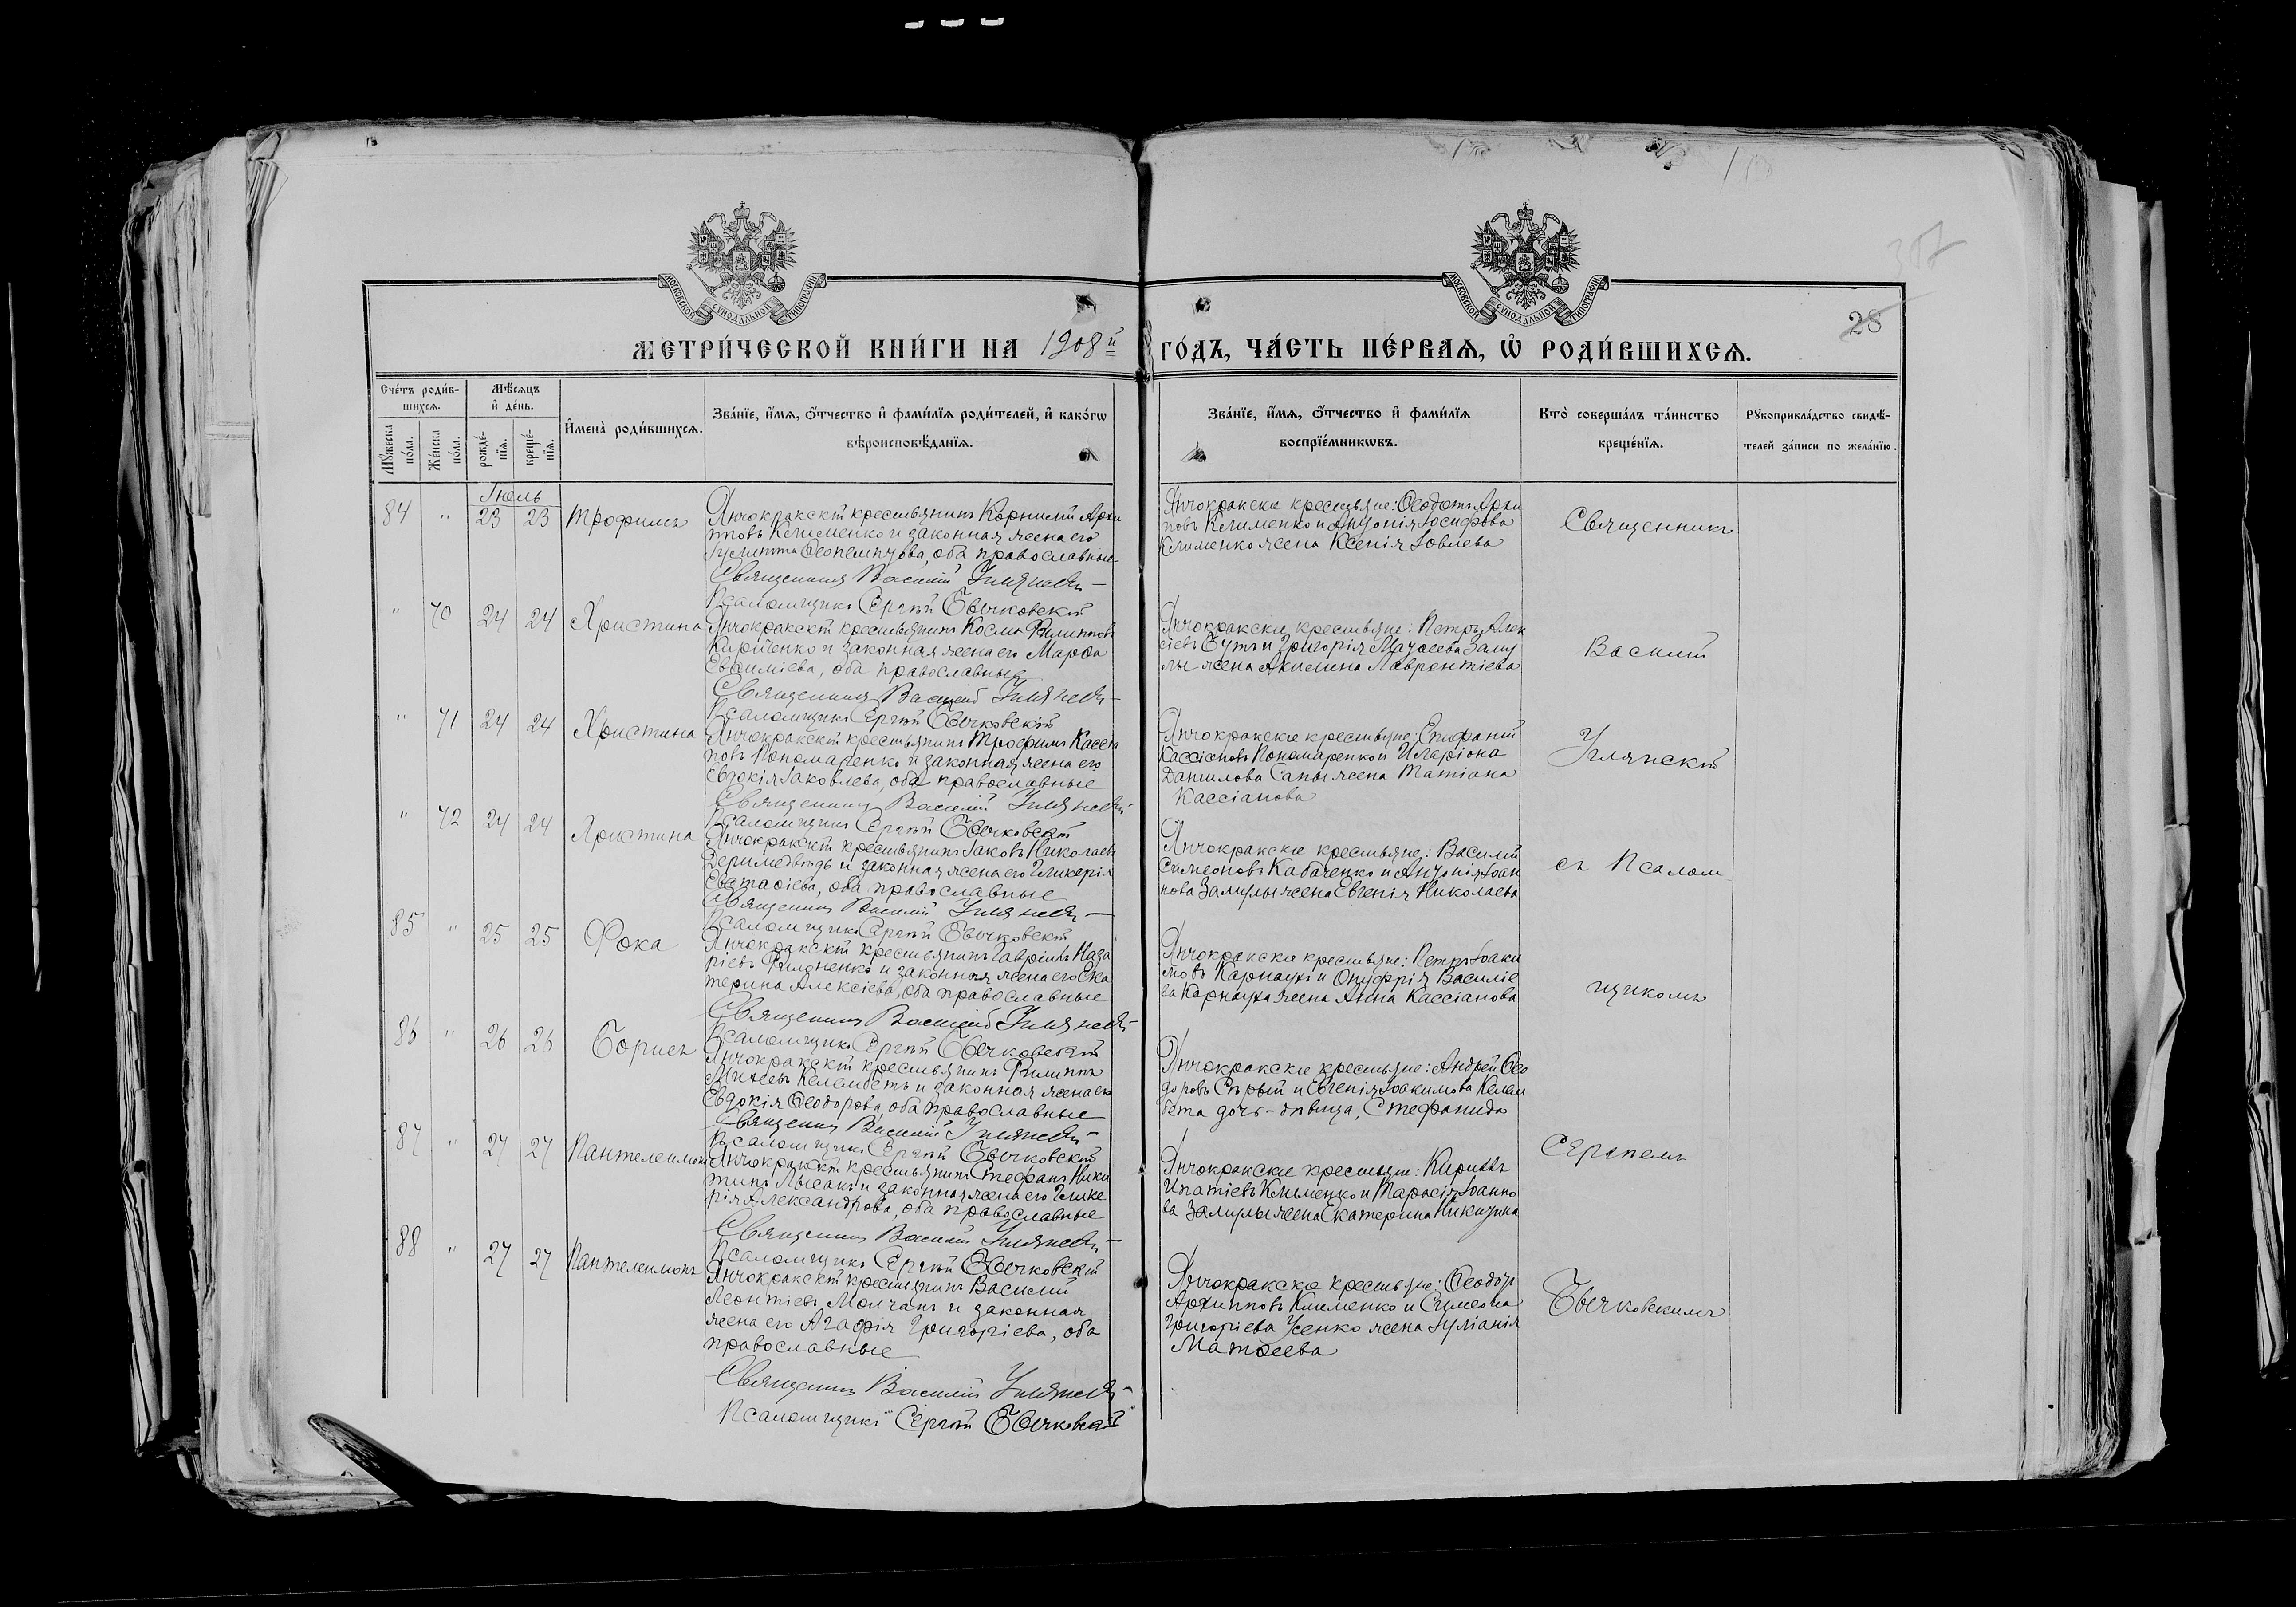 МОСКОВСКОЙ СѴНОДАЛЬНОЙ ТИПОГРАФІИ
МОСКОВСКОЙ СѴНОДАЛЬНОЙ ТИПОГРАФІИ
28
МЕТРИ́ЧЕСКОЙ КНИ́ГИ НА 1908й ГО́ДЪ, ЧА́СТЬ ПЕ́РВАѦ, Ѡ҆ РОДИ́ВШИХСѦ.
Сче́тъ роди́в-
шихсѧ.
Мꙋ́жеска по́ла.
Же́нска по́ла.
Мѣ́сѧцъ
и҆ де́нь.
рожде́-нїѧ.
креще́-нїѧ.
И҆мена̀ роди́вшихсѧ.
Зва́нїе, и҆́мѧ, ѻ҆́тчество и҆ фами́лїѧ роди́телей, и҆ како́гѡ
вѣроисповѣ́данїѧ.
Зва́нїе, и҆́мѧ, ѻ҆́тчество и҆ фами́лїѧ
воспрїе́мникѡвъ.
Кто̀ соверша́лъ та́инство
креще́нїѧ.
Рꙋкоприкла́дство свидѣ́-
телей за́писи по жела́нїю.
Іюль
84 " 23 23 Трофимъ
Янчокракскій крестьянинъ Корнилій Архи
пповъ Клименко и законная жена его
Іулитта Ѳеопемптова, оба православные
Священникъ Василій Улянскій
Псаломщикъ Сергѣй Бычковскій
Янчокракскіе крестьяне: Ѳеодотъ Архи
повъ Клименко и Антонія Іосифова
Клименко жена Ксенія Іовлева
Священникъ
" 70 24 24 Христина
Янчокракскій крестьянинъ Косма Филипповъ
Кириченко и законная жена его Марѳа
Евѳиміева, оба православные
Священникъ Василій Улянскій
Псаломщикъ Сергѣй Бычковскій
Янчокракскіе крестьяне: Петръ Алек
сіевъ Бутъ и Григорія Матѳеева Залу
лы жена Акилина Лаврентіева
Василій
" 71 24 24 Христина
Янчокракскій крестьянинъ Трофимъ Кассіа
новъ Пономаренко и законная жена его
Евдокія Іаковлева, оба православные
Священникъ Василій Улянскій
Псаломщикъ Сергѣй Бычковскій
Янчокракскіе крестьяне: Епифаній
Кассіановъ Пономаренко и Иларіона
Данилова Сапы жена Татіана
Кассіанова
Улянскій
" 72 24 24 Христина
Янчокракскій крестьянинъ Іаковъ Николаевъ
Деримедвѣдь и законная жена его Гликерія
Евстаѳіева, оба православные
Священникъ Василій Улянскій
Псаломщикъ Сергѣй Бычковскій
Янчокракскіе крестьяне: Василій
Симеоновъ Кабаченко и Антонія Іоан
нова Залилы жена Евгенія Николаева
съ Псалом
85 " 25 25 Фока
Янчокракскій крестьянинъ Гавріилъ Наза
ріевъ Филоненко и законная жена его Ека
терина Алексіева, оба православные
Священникъ Василій Улянскій
Псаломщикъ Сергѣй Бычковскій
Янчокракскіе крестьяне: Петръ Іоаки
мовъ Карнаухъ и Онуфрія Василіе
ва Карнауха жена Анна Кассіанова
щикомъ
86 " 26 26 Борисъ
Янчокракскій крестьянинъ Филиппъ
Михеевъ Келембетъ и законная жена его
Евдокія Ѳеодорова, оба православные
Священникъ Василій Улянскій
Псаломщикъ Сергѣй Бычковскій
Янчокракскіе крестьяне: Андрей Ѳео
доровъ Сѣрый и Евгенія Іоакимова Келем
бета дочь-дѣвица, Стефанида
87 " 27 27 Пантелеимонъ
Янчокракскій крестьянинъ Стефанъ Ники
тинъ Лысакъ и законная жена его Глике
рія Александрова, оба православные
Священникъ Василій Улянскій
Псаломщикъ Сергѣй Бычковскій
Янчокракскіе крестьяне: Кириллъ
Ипатіевъ Клименко и Тарасія Іоанно
ва Залилы жена Екатерина Никитина
Сергѣемъ
88 " 27 27 Пантелеимонъ
Янчокракскій крестьянинъ Василій
Леонтіевъ Молчанъ и законная
жена его Агафія Григоріева, оба
православные
Священникъ Василій Улянскій
Псаломщикъ Сергѣй Бычковскій
Янчокракскіе крестьяне: Ѳеодоръ
Архипповъ Клименко и Симеона
Григоріева Усенко жена Іуліанія
Матѳеева
Бычковскимъ